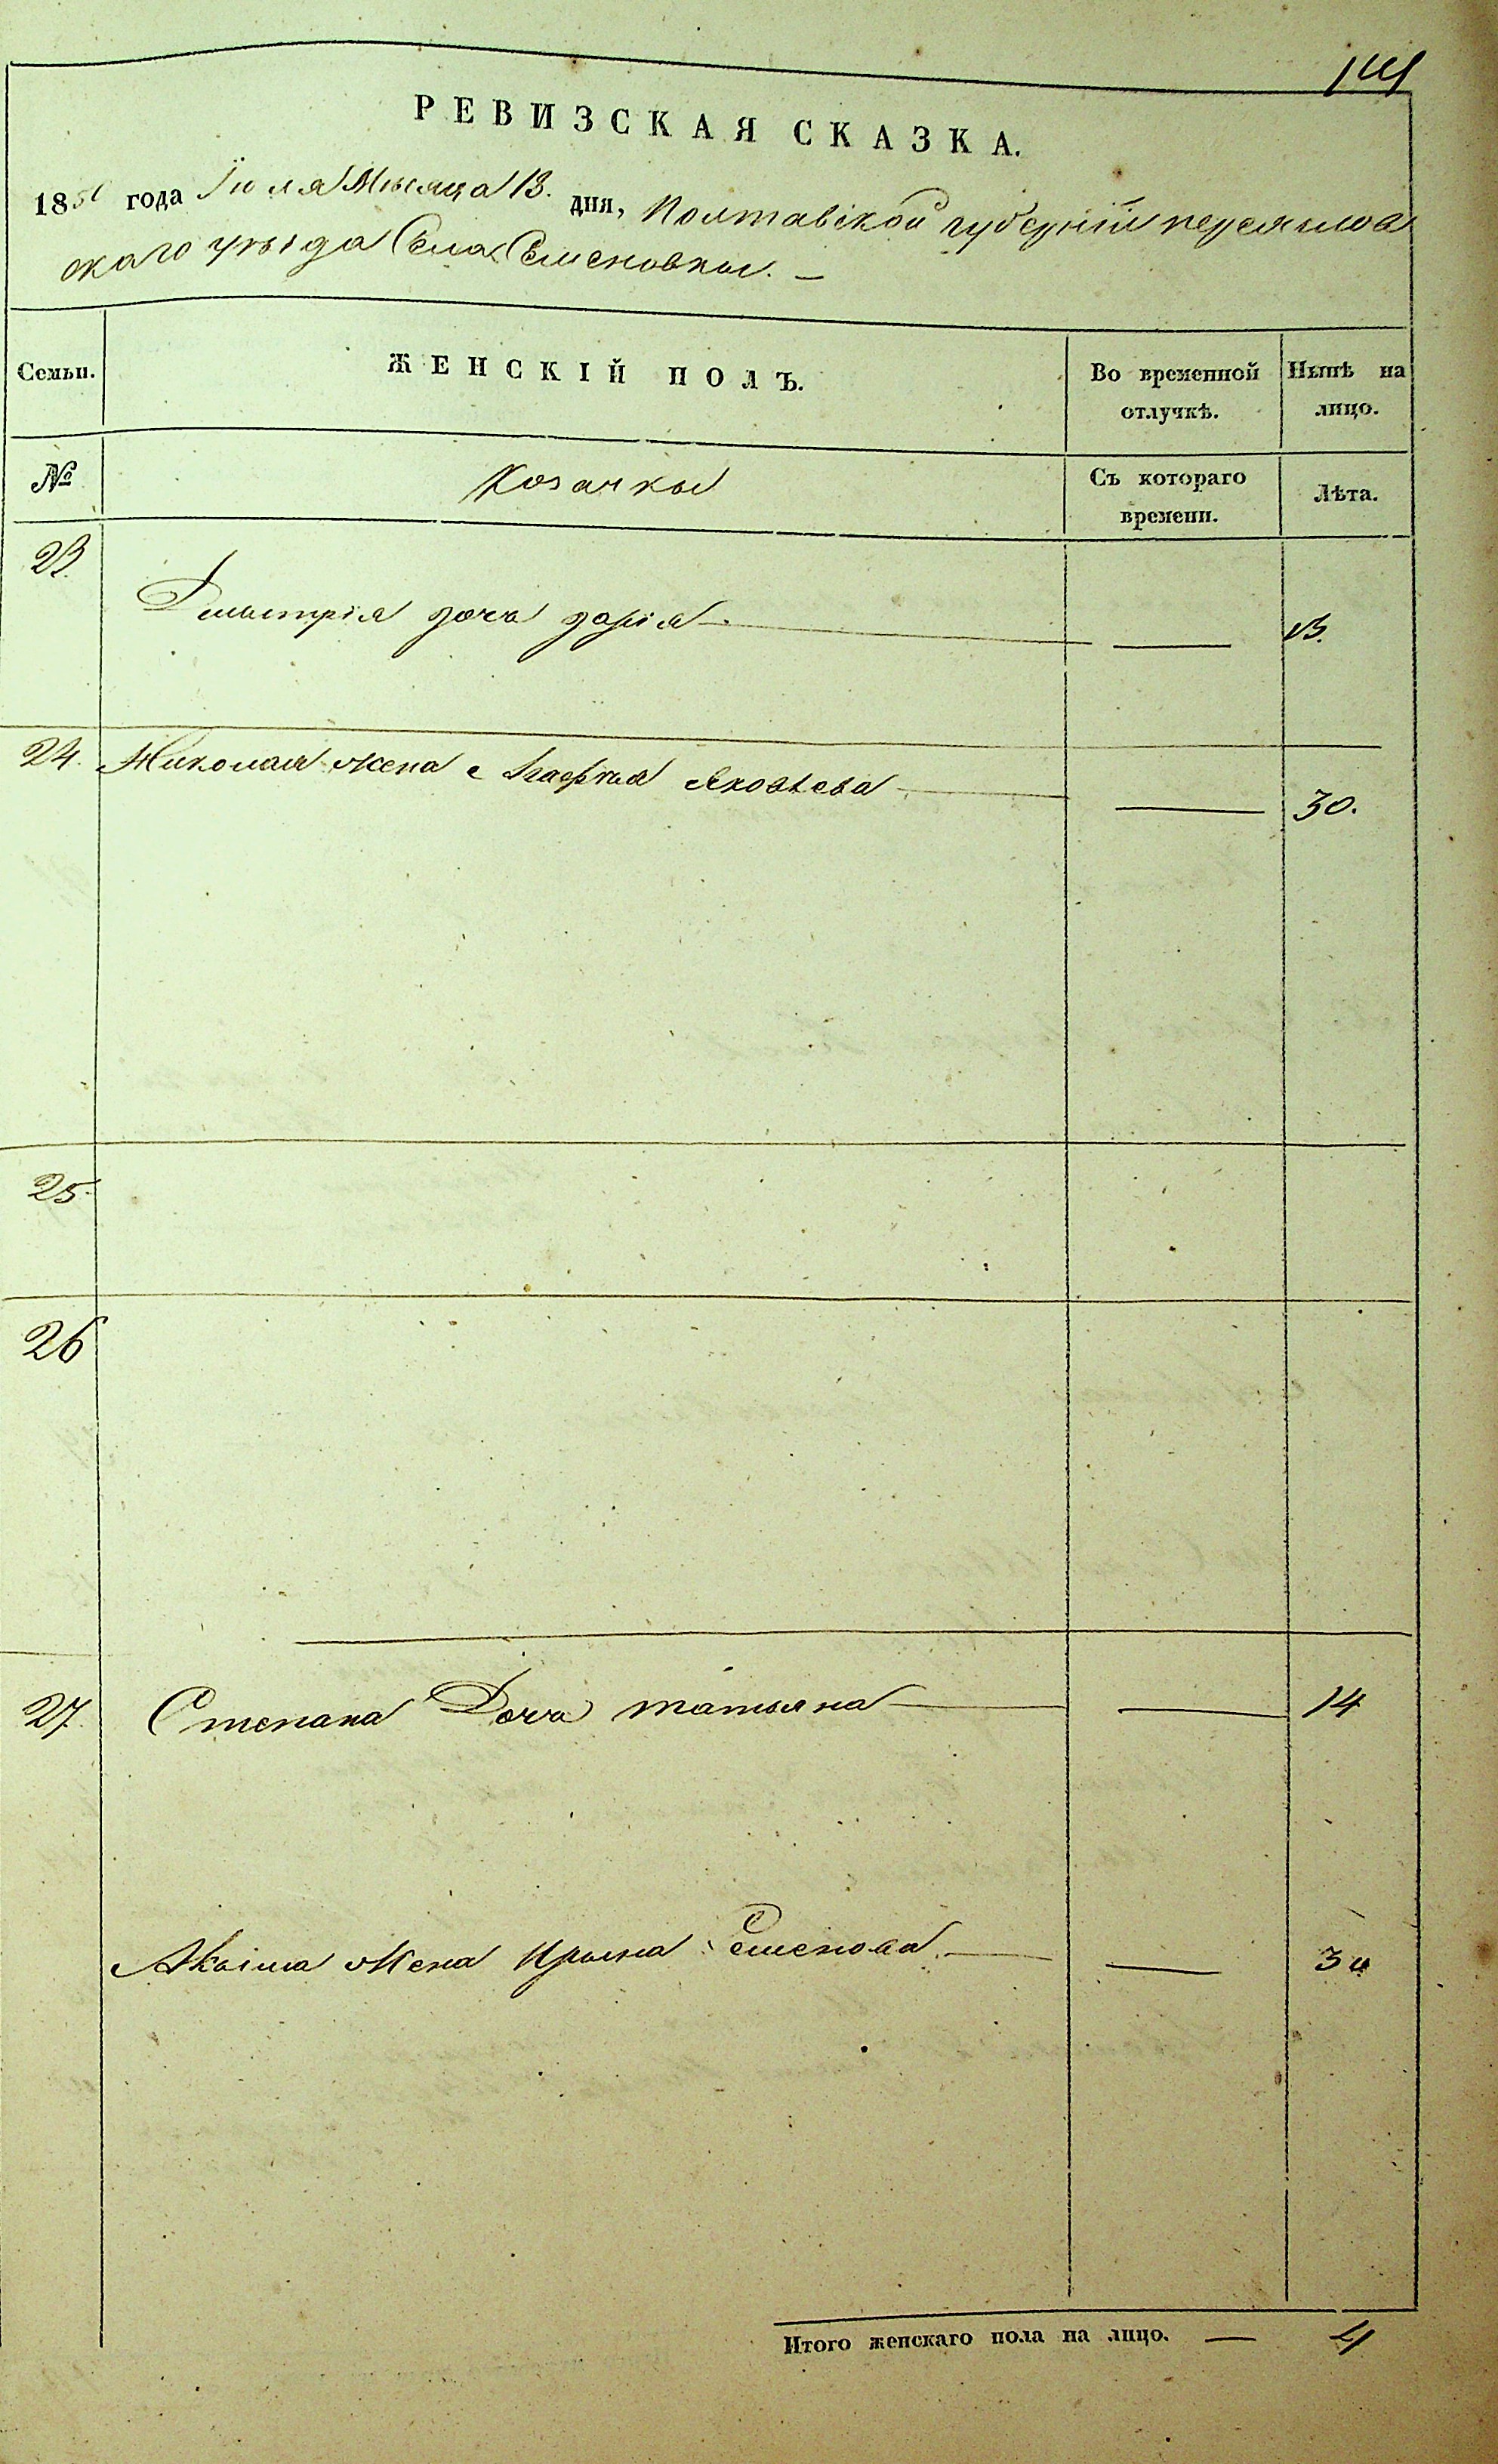 РЕВИЗСКАЯ СКАЗКА.
18 года Іюля Мѣсяца 13. дня, Полтавской губерніи переяслов
скаго уѣзда Села Семеновки. —
Семьи. ЖЕНСКІЙ ПОЛЪ. Во временной отлучкѣ. Нынѣ на лицо.
№ Козачки Съ котораго времени. Лѣта.
23. Дмытрія доча дарія — — 13.
24. Николая жена Яковлева — — 30.
25.
26
27. Степана Доча татьяна — — 14
Акыма жена Ирына Семенова — —
Итого женскаго пола на лицо. — 4